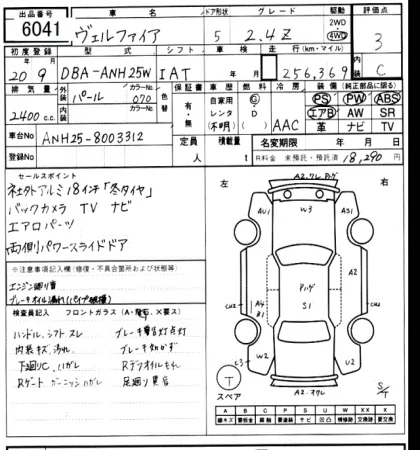 出品番号 車名 ドア形状 グレード 駆動 評価点
6041 ヴェルファイア 5 2.4Z 2WD 4WD 3
初度登録 型式 シフト 車検 走行(km・マイル) 内装
20年 9月 DBA-ANH25W IAT 年 月 256,369 C
排気量 外装 カラーNo. 色替 保証書 車歴 燃料 冷房 装備(純正部品に限る)
2400cc パール 070 有・無 自家用 G PS PW ABS
内装 カラーNo. レンタ D AAC エアB AW SR
(不明) 革 ナビ TV
車台No ANH25-8003312 定員 人 積載量 名変期限 年 月 日
登録No. R料金 未預託・預託済 18,290円
セールスポイント
社外アルミ18インチ「冬タイヤ」
バックカメラ TV ナビ
エアロパーツ
両側パワースライドドア
※注意事項記入欄(修復・不具合箇所および状態)
エンジン廻り音
ブレーキオイル漏れ(パイプ破損)
検査員記入 フロントガラス(A・飛石、X要ス)
ハンドル、シフトスレ ブレーキ警告灯点灯
内装キズ、汚れ ブレーキ効かず
下廻りC、ハガレ Rデフオイルもれ
Rゲートガーニッシュハガレ 足廻り異音
左 右
A2.フレ.ハゲ
AU1 W3 AS1
A2
CU2 A4 B1 ハゲ S1 CU2
C3 W2 U2
A2.ヌケ
T
スペア
S/T
A B C P S U W XX X
線キズ 要板金 腐食 要塗装 サビ 凹凸 補修跡 交換跡 要交換